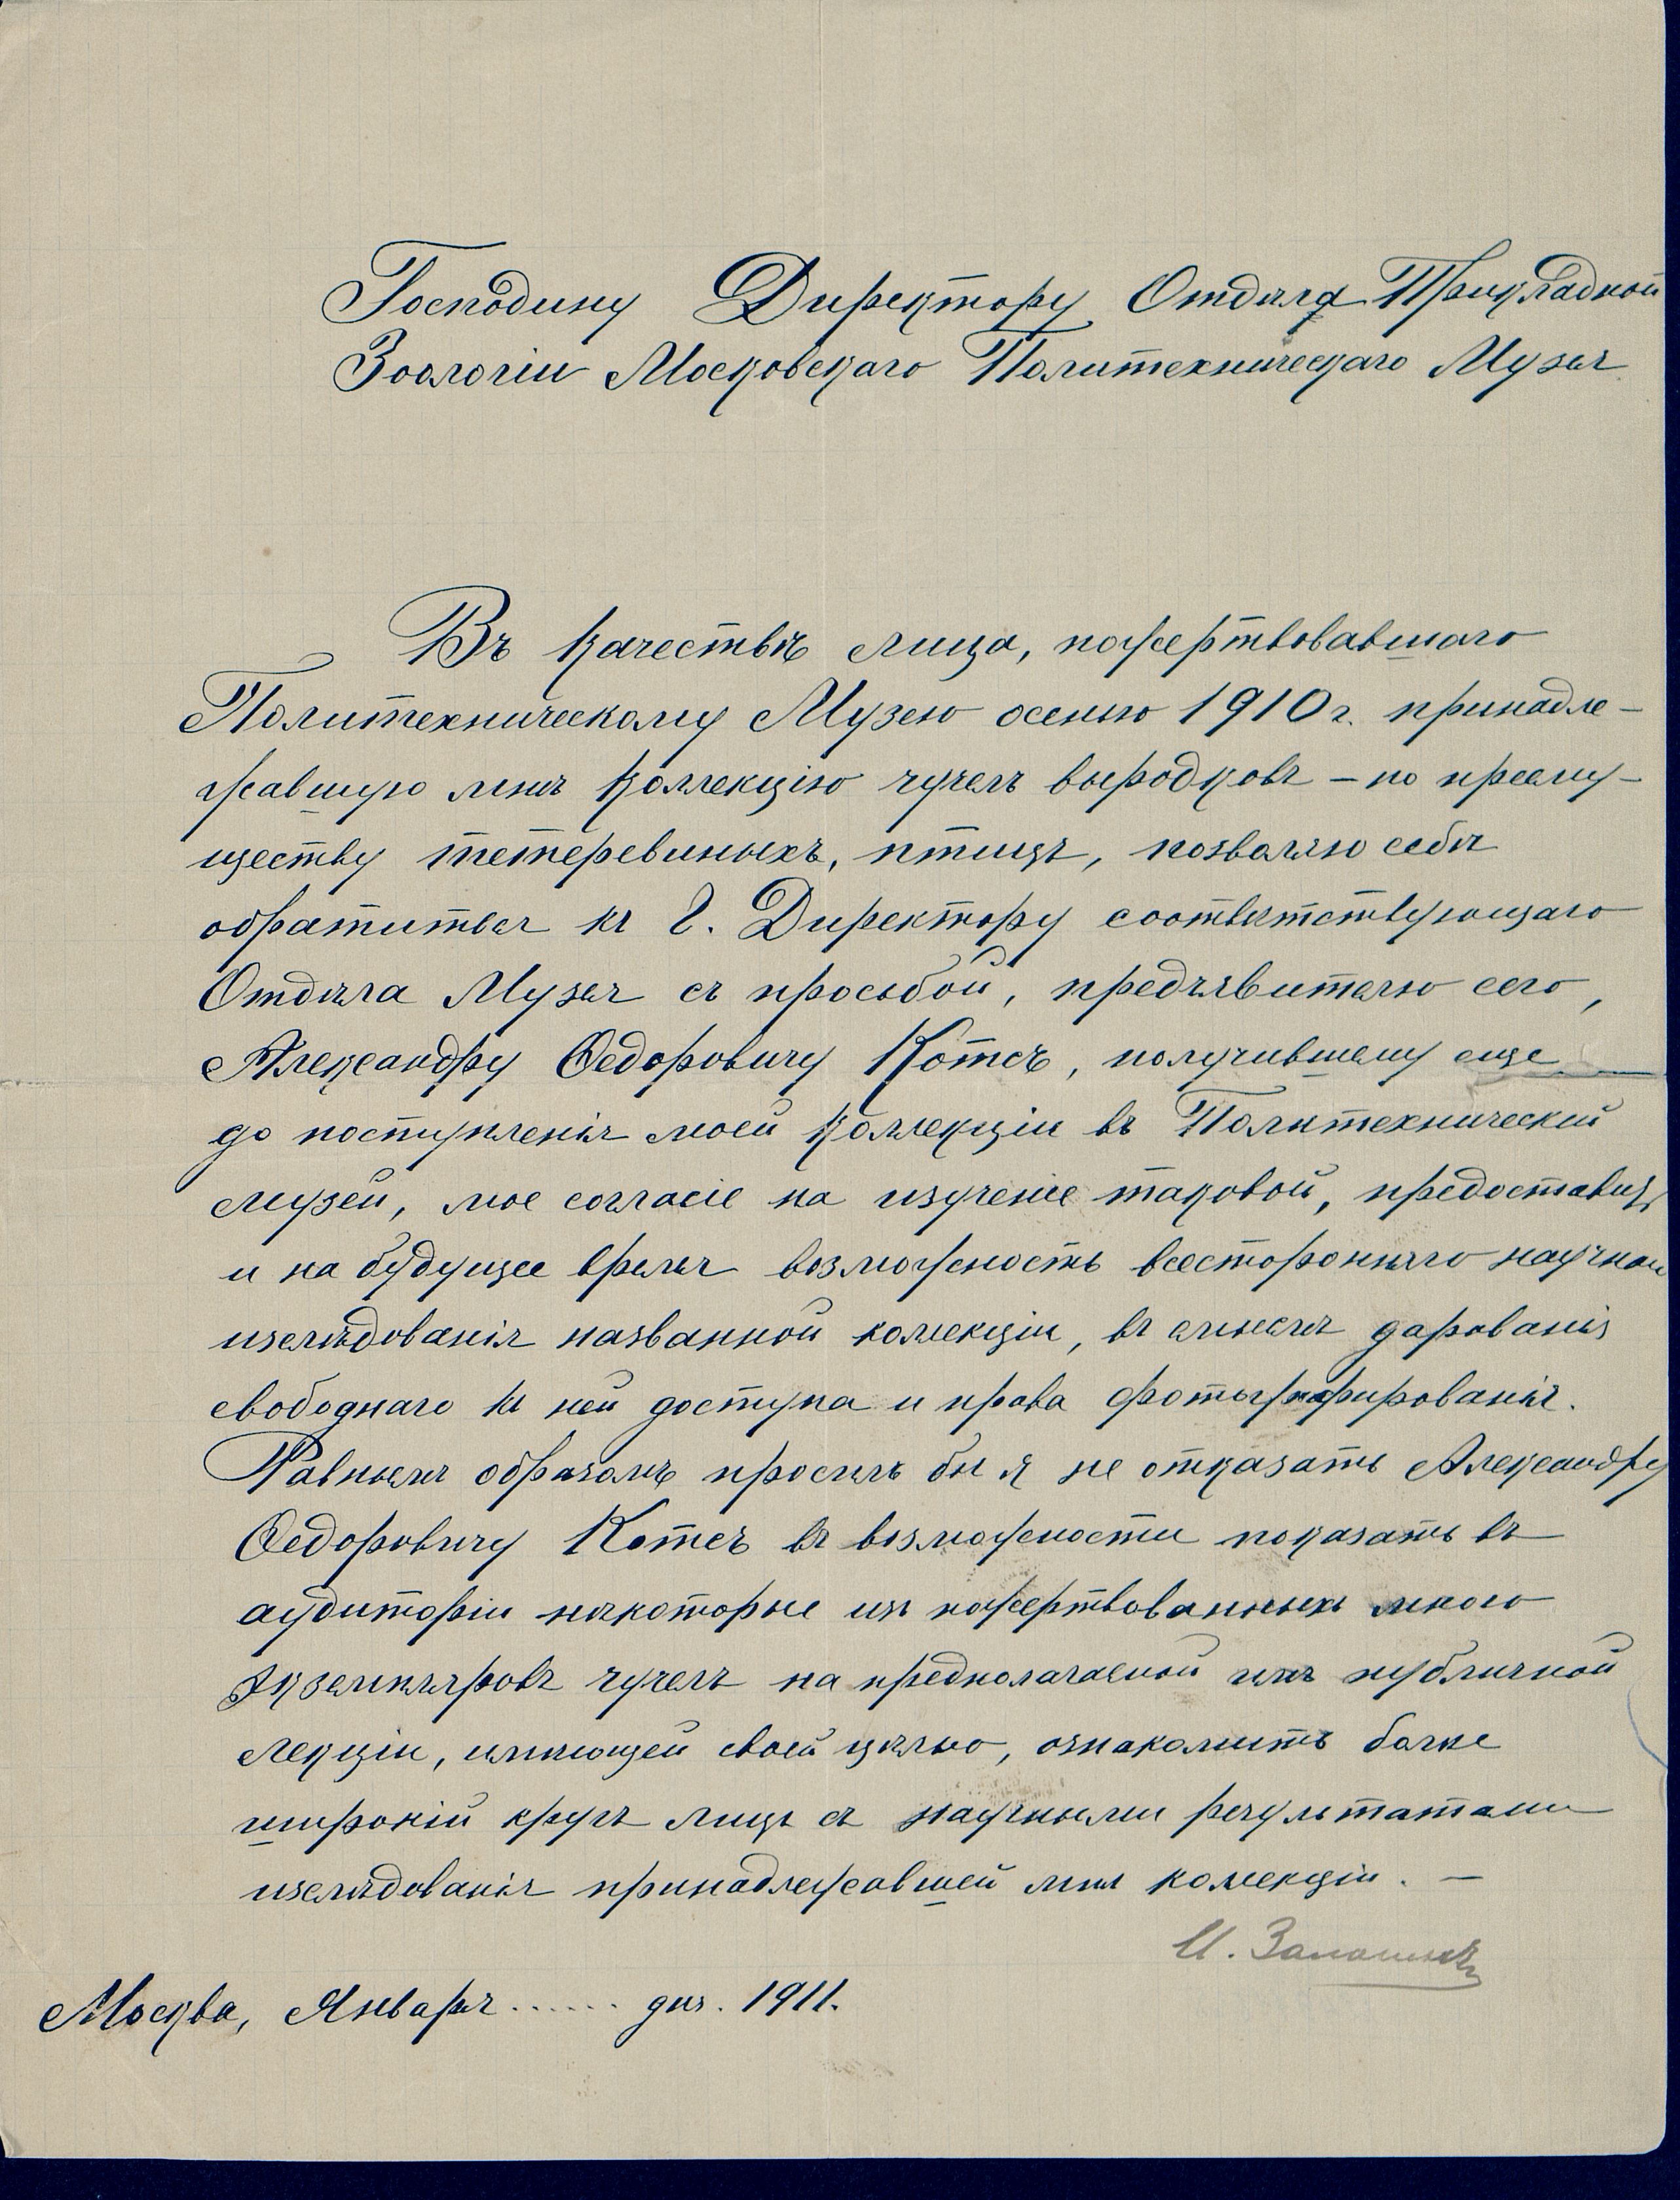 Господину Директору Отдѣла Прикладной
Зоологіи Московскаго Политехническаго Музея
Въ качествѣ лица, пожертвовавшаго
Политехническому Музею осенью 1910 г. принадле-
жавшую мнѣ коллекцію чучелъ выродковъ – по преиму-
ществу тетеревиныхъ, птицъ, позволяю себѣ
обратиться къ Г. Директору соотвѣтствующаго
Отдѣла Музея съ просьбой, предъявителю сего,
Александру Ѳедоровичу Котсъ, получившему еще
до поступленія моей коллекціи въ Политехническій
музей, мое согласіе на изученіе таковой, предоставить
и на будущее время возможность всесторонняго научнаго
изслѣдованія названной коллекціи, въ смыслѣ дарованія
свободнаго къ ней доступа и права фотографированія.
Равнымъ образомъ просилъ бы я не отказать Александру
Ѳедоровичу Котсъ въ возможности показать въ
аудиторіи нѣкоторые изъ пожертвованныхъ мною
экземпляровъ чучелъ на предполагаемой имъ публичной
лекціи, имѣющей своей цѣлью, ознакомить болѣе
широкій кругъ лицъ съ научными результатами
изслѣдованія принадлежавшей мнѣ коллекціи. –
Москва, Января ...... дня. 1911.